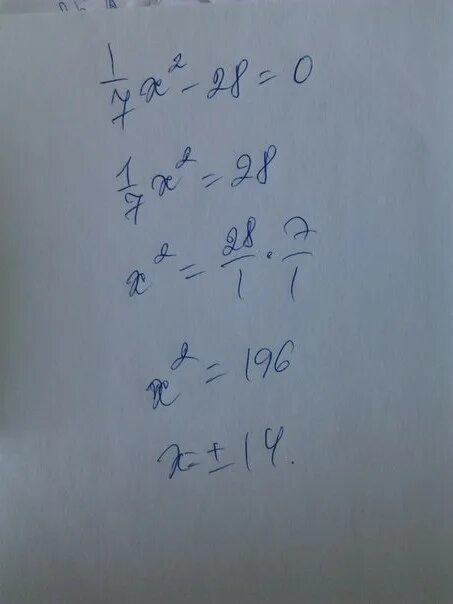 1/7 x² - 28 = 0
1/7 x² = 28
x² = 28/1 · 7/1
x² = 196
x = ± 14.